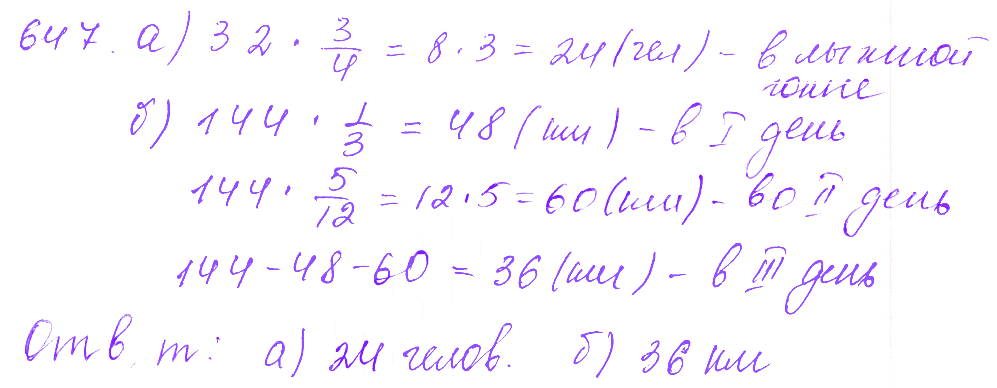 647. а) 32 · 3/4 = 8 · 3 = 24 (чел) – в лыжной
гонке
б) 144 · 1/3 = 48 (км) – в I день
144 · 5/12 = 12 · 5 = 60 (км) – во II день
144 – 48 – 60 = 36 (км) – в III день
Отв т: а) 24 челов. б) 36 км